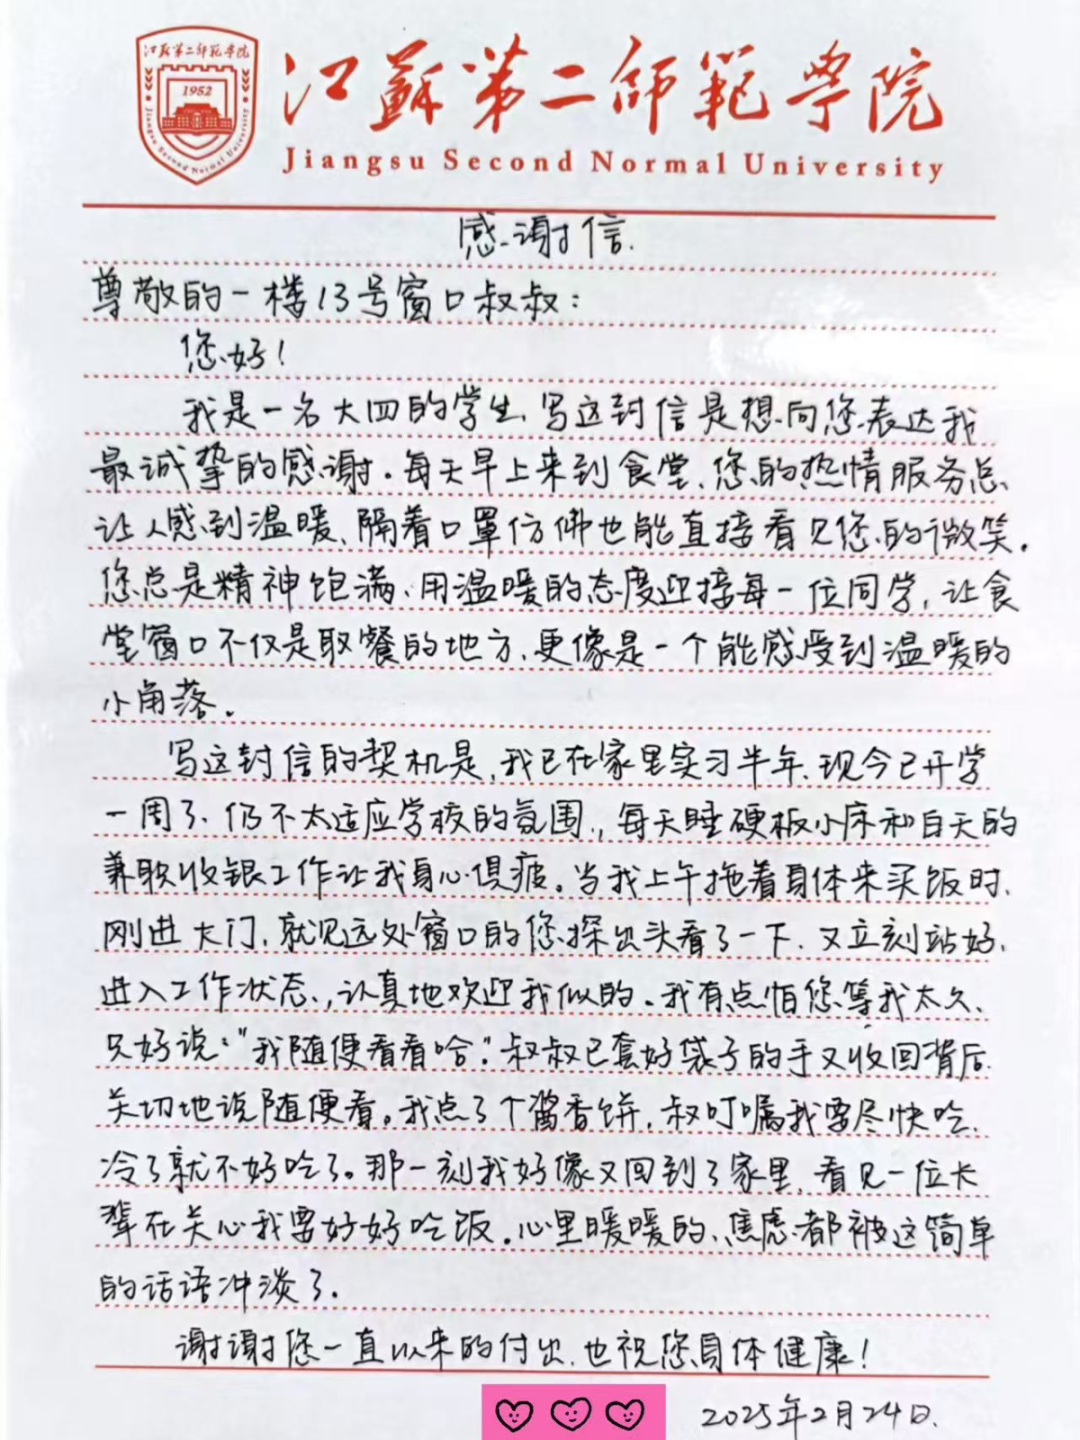 江蘇第二師範學院
1952
Jiangsu Second Normal University
江蘇第二師範學院
Jiangsu Second Normal University
感谢信.
尊敬的一楼13号窗口叔叔:
您好!
我是一名大四的学生,写这封信是想向您表达我
最诚挚的感谢.每天早上来到食堂,您的热情服务总
让人感到温暖,隔着口罩仿佛也能直接看见您的微笑.
您总是精神饱满,用温暖的态度迎接每一位同学,让食
堂窗口不仅是取餐的地方,更像是一个能感受到温暖的
小角落.
写这封信的契机是,我已在家里实习半年,现今已开学
一周了,仍不太适应学校的氛围,,每天睡硬板小床和白天的
兼职收银工作让我身心俱疲。当我上午拖着身体来买饭时,
刚进大门,就见远处窗口的您探出头看了一下,又立刻站好,
进入工作状态,,认真地欢迎我似的.我有点怕您等我太久,
只好说:"我随便看看哈".叔叔已套好袋子的手又收回背后,
关切地说随便看。我点了个酱香饼,叔叮嘱我要尽快吃,
冷了就不好吃了。那一刻我好像又回到了家里,看见一位长
辈在关心我要好好吃饭.心里暖暖的,焦虑都被这简单
的话语冲淡了.
谢谢您一直以来的付出,也祝您身体健康!
2025年2月24日.